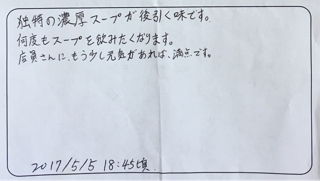 独特の濃厚スープが後引く味です。
何度もスープを飲みたくなります。
店員さんに、もう少し元気があれば、満点です。
2017/5/5 18:45頃